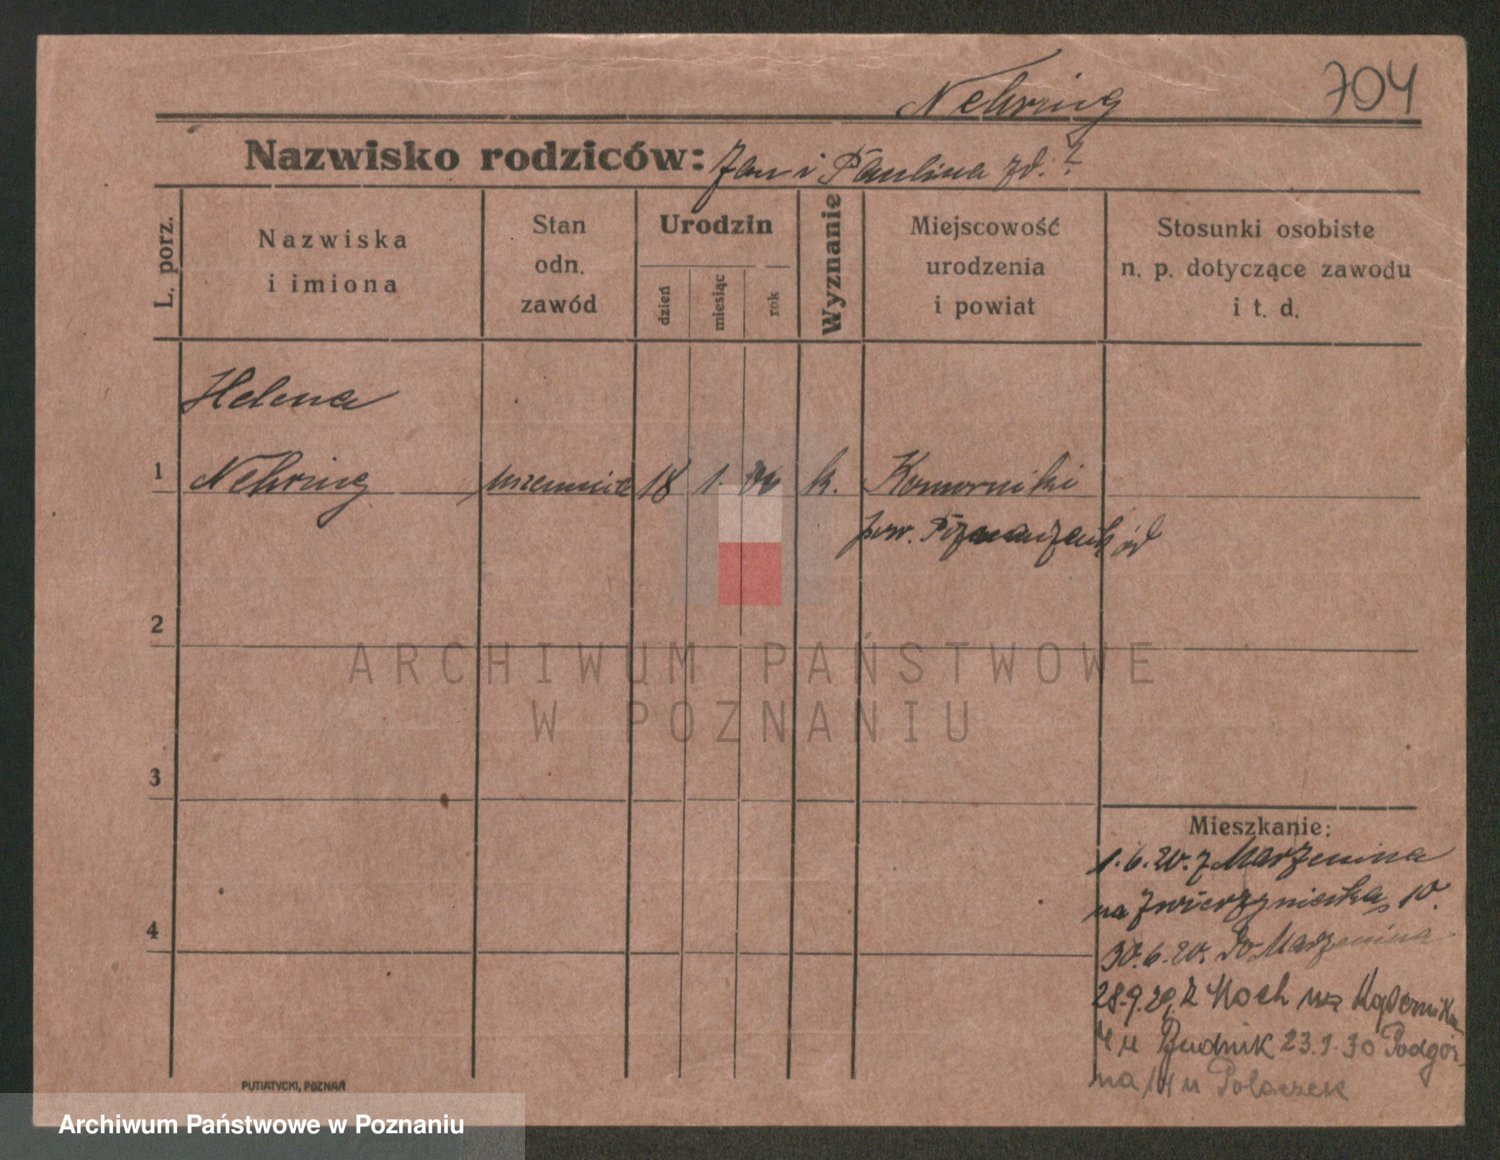 Nehring 704
Nazwisko rodziców: Jan i Paulina zd. ?
L. porz.
Nazwiska
i imiona
Stan
odn.
zawód
Urodzin
dzień
miesiąc
rok
Wyznanie
Miejscowość
urodzenia
i powiat
Stosunki osobiste
n. p. dotyczące zawodu
i t. d.
Helena
1 Nehring 18 1. k. Komorniki
pow.
2
ARCHIWUM PAŃSTWOWE
W POZNANIU
3
Mieszkanie:
1.6.20. z Marzenina
na Zwierzyniecka 10.
4
30.6.20. Do Marzenina
28.9.29. z Koch na
4 u Budnik 23.1.30 Podgór-
na 14 u Polaczek
PUTIATYCKI, POZNAŃ
Archiwum Państwowe w Poznaniu